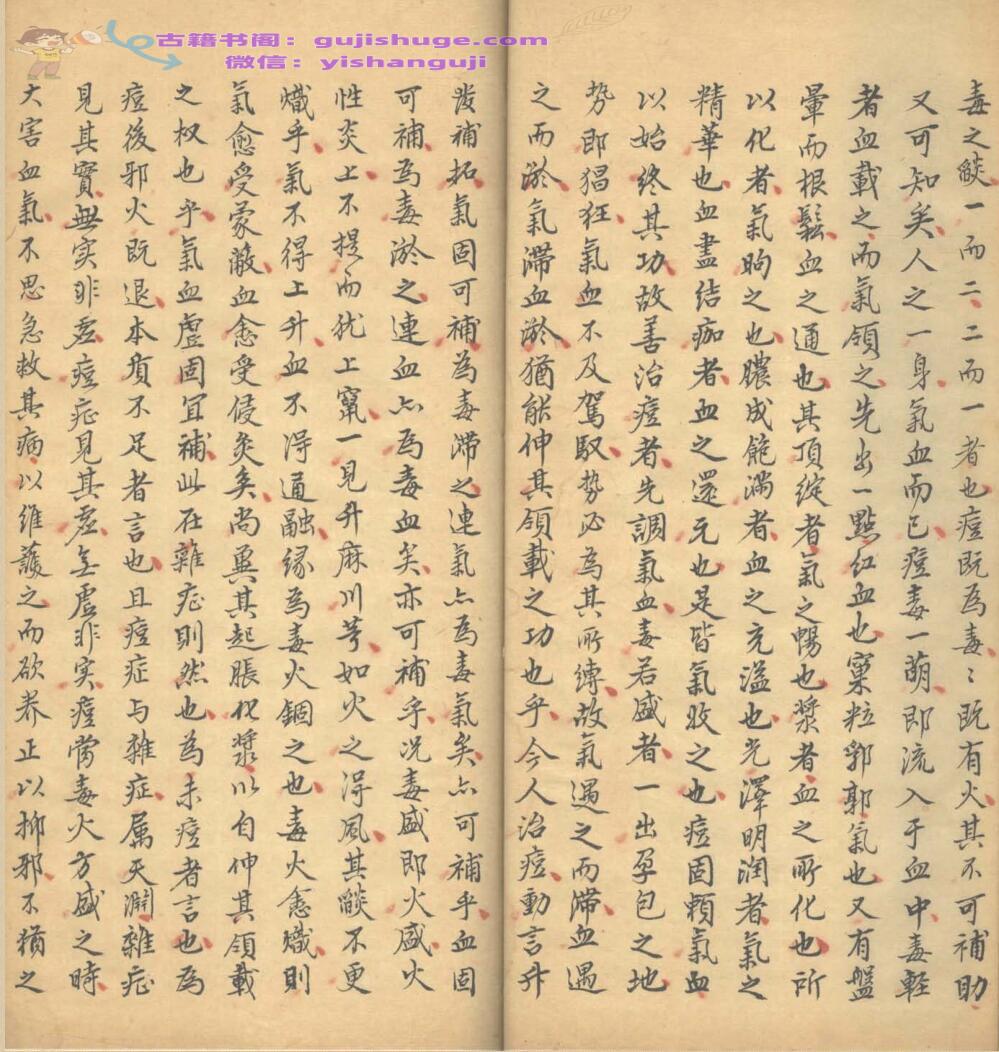 古籍书阁：gujishuge.com
微信：yishanguji
毒之燄一而二二而一者也痘既為毒〻既有火其不可補助
又可知矣人之一身氣血而已痘毒一萌即流入于血中毒輕
者血載之而氣領之先出一點紅血也窠粒郛郭氣也又有盤
暈而根鬆血之通也其頂綻者氣之暢也漿者血之所化也所
以化者氣昫之也膿成飽满者血之充溢也光澤明潤者氣之
精華也血盡結痂者血之還元也是皆氣收之也痘固賴氣血
以始終其功故善治痘者先調氣血毒若盛者一出孕包之地
势即猖狂氣血不及駕馭势必為其所縛故氣遇之而滞血遇
之而淤氣滞血淤猶能伸其領載之功也乎今人治痘動言升
发補拓氣固可補為毒滞之連氣亦為毒氣矣亦可補乎血固
可補為毒淤之連血亦為毒血矣亦可補乎况毒盛即火盛火
性炎上不提而犹上竄一見升麻川芎如火之淂風其燄不更
熾乎氣不得上升血不淂通融缘為毒火錮之也毒火愈熾則
氣愈受蒙蔽血愈受侵灸矣尚冀其起脹化漿以自伸其領載
之权也乎氣血虚固宜補此在雜症則然也為未痘者言也為
痘後邪火既退本質不足者言也且痘症与雜症属天淵雜症
見其實無实非虚痘症見其虚無虚非实痘當毒火方盛之時
大害血氣不思急救其病以维護之而欲养正以抑邪不猶之